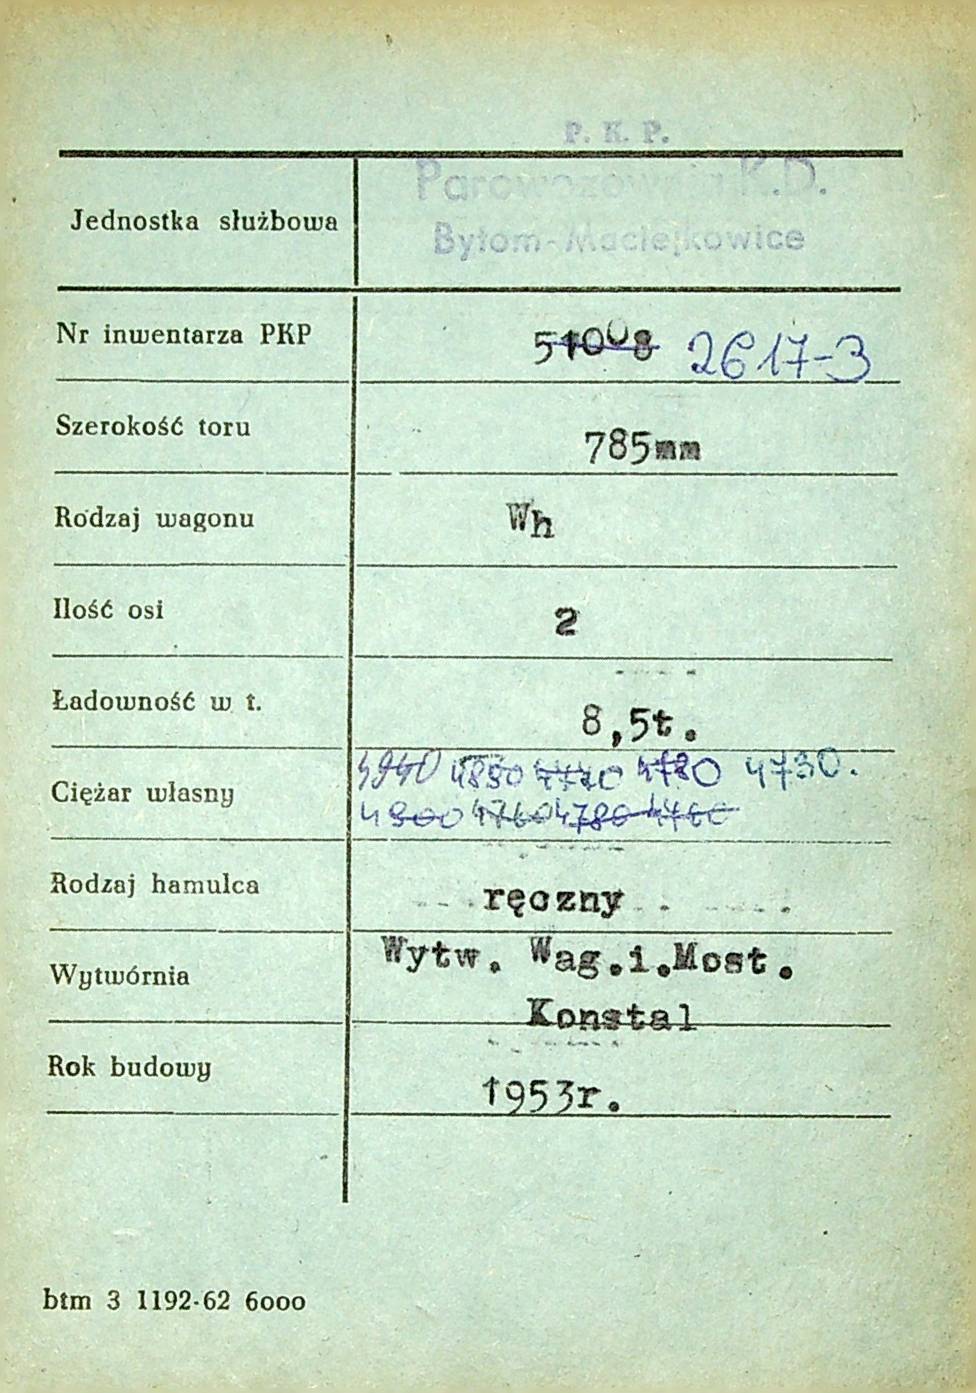 P. K. P.
Parowozownia K.D.
Bytom-Maciejkowice
Jednostka służbowa
Nr inwentarza PKP 51008 2617-3
Szerokość toru 785mm
Rodzaj wagonu Wh
Ilość osi 2
Ładowność w t. 8,5t.
4850 4780 4730.
Ciężar własny
4800 4760 4780 4760
Rodzaj hamulca ręczny
Wytw. Wag.i.Most.
Wytwórnia
Konstal
Rok budowy 1953r.
btm 3 1192-62 6000